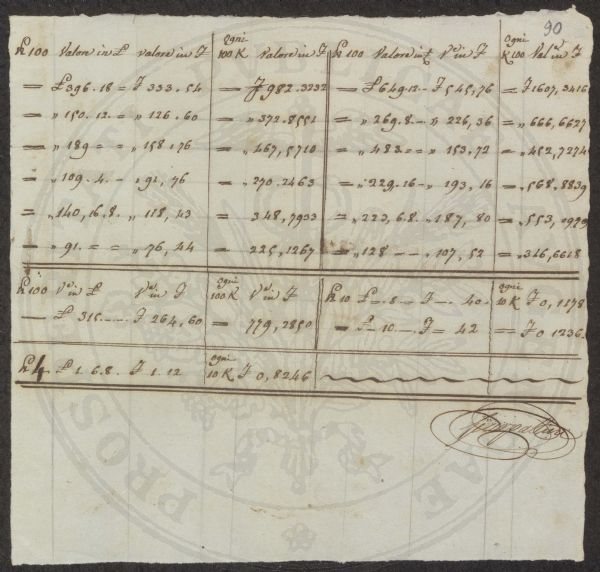 90
℔ 100 Valore in £ Valore in F Ogni 100 K Valore in F ℔ 100 Valore in £ Vᵉ in F Ogni K 100 Valᵉ in F
= £ 396.18 = F 333.54 = F 982.3232 £ 649.12 - F 545,76 = F 1607,3416
= „ 150.12. = „ 126.60 = „ 372.8551 = „ 269.8 - „ 226,36 = „ 666,6627
= „ 189 = = „ 158.76 = „ 467,5710 = „ 483. = = „ 153.72 = „ 452,7274
= „ 109.4. - „ 91,76 = „ 270.2463 = „ 229.16 - „ 193,16 = „ 568.8839
= „ 140,16.8. „ 118,43 = 348,7933 = „ 223,6.8. „ 187,80 = „ 553,
= „ 91. = = „ 76,44 = 225,1267 = „ 128 - - „ 107,52 = „ 316,6618
℔ 100 Vᵉ in £ Vᵉ in F Ogni 100 K Vᵉ in F ℔ 10 £ -. 8 = F -. 40. Ogni 10 K F 0,1178
- £ 315. - - - F 264,60 = 779,2850 = £ - 10 - . F = 42 = F 0 1236.
℔ 4 £ 1.6.8. F 1.12 Ogni 10 K F 0,8246